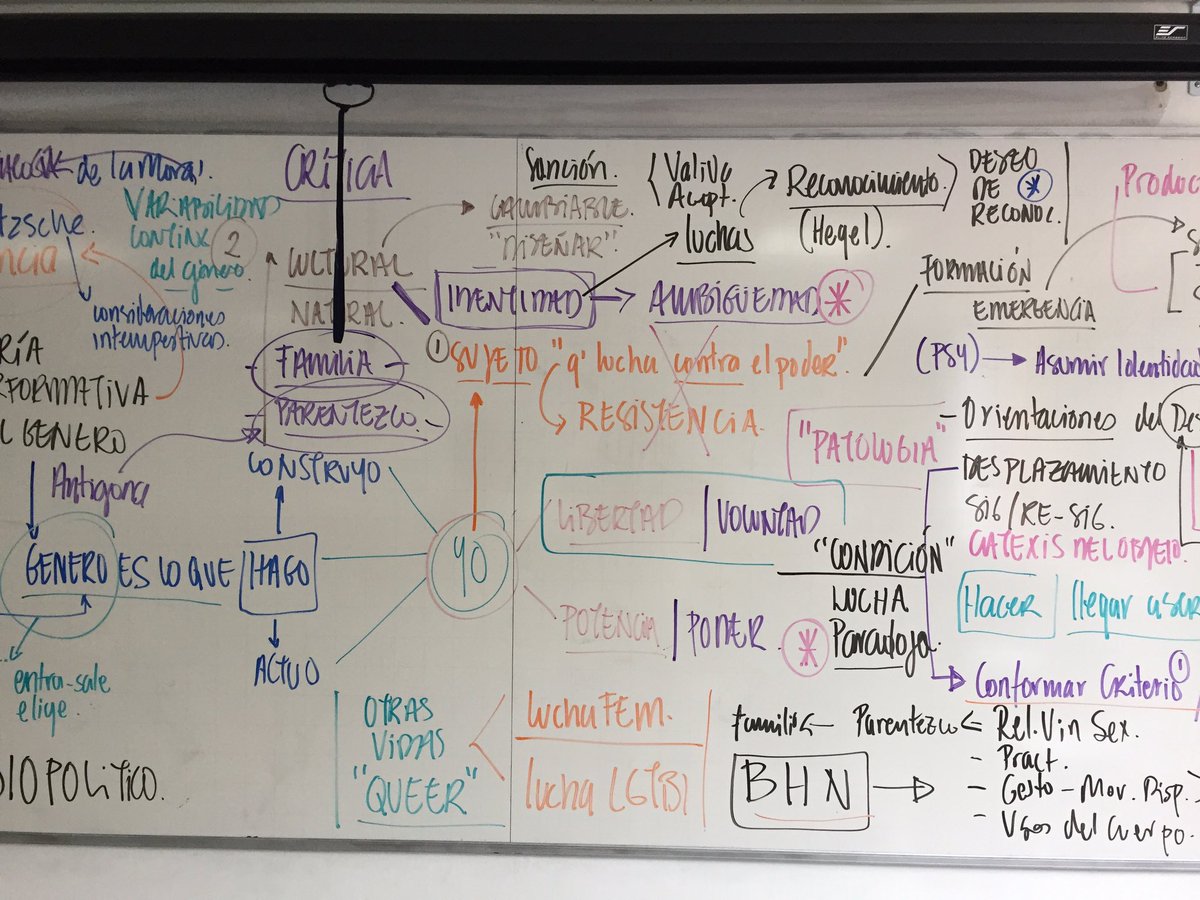 de la Moral
CRÍTICA
VARIABILIDAD
del género
2
CULTURAL
NATURAL
consideraciones
intempestivas.
FAMILIA
PARENTEZCO
CONSTRUYO
Antígona
GENERO ES LO QUE HAGO
ACTUO
entra-sale
elige
YO
OTRAS
VIDAS
"QUEER"
lucha FEM.
lucha LGTBI
Sanción.
CAMBIABLE.
"DISEÑAR"
Acept.
luchas
Reconocimiento.
(Hegel).
DESEO
DE
RECONOC.
IDENTIDAD
AMBIGÜEDAD
1 SUJETO "q' lucha contra el poder"
RESISTENCIA.
FORMACIÓN
EMERGENCIA
(PSY)
Asumir Identidad
"PATOLOGIA"
- Orientaciones del
DESPLAZAMIENTO
SIG/RE-SIG.
CATEXIS DEL OBJETO.
LIBERTAD | VOLUNTAD
"CONDICIÓN"
LUCHA
Paradoja.
POTENCIA | PODER
Hacer
llegar a ser
Conformar Criterio 1
familia
Parentezco
Rel. Vin Sex.
- Pract.
- Gesto - Mov. Disp.
- Usos del cuerpo.
BHN